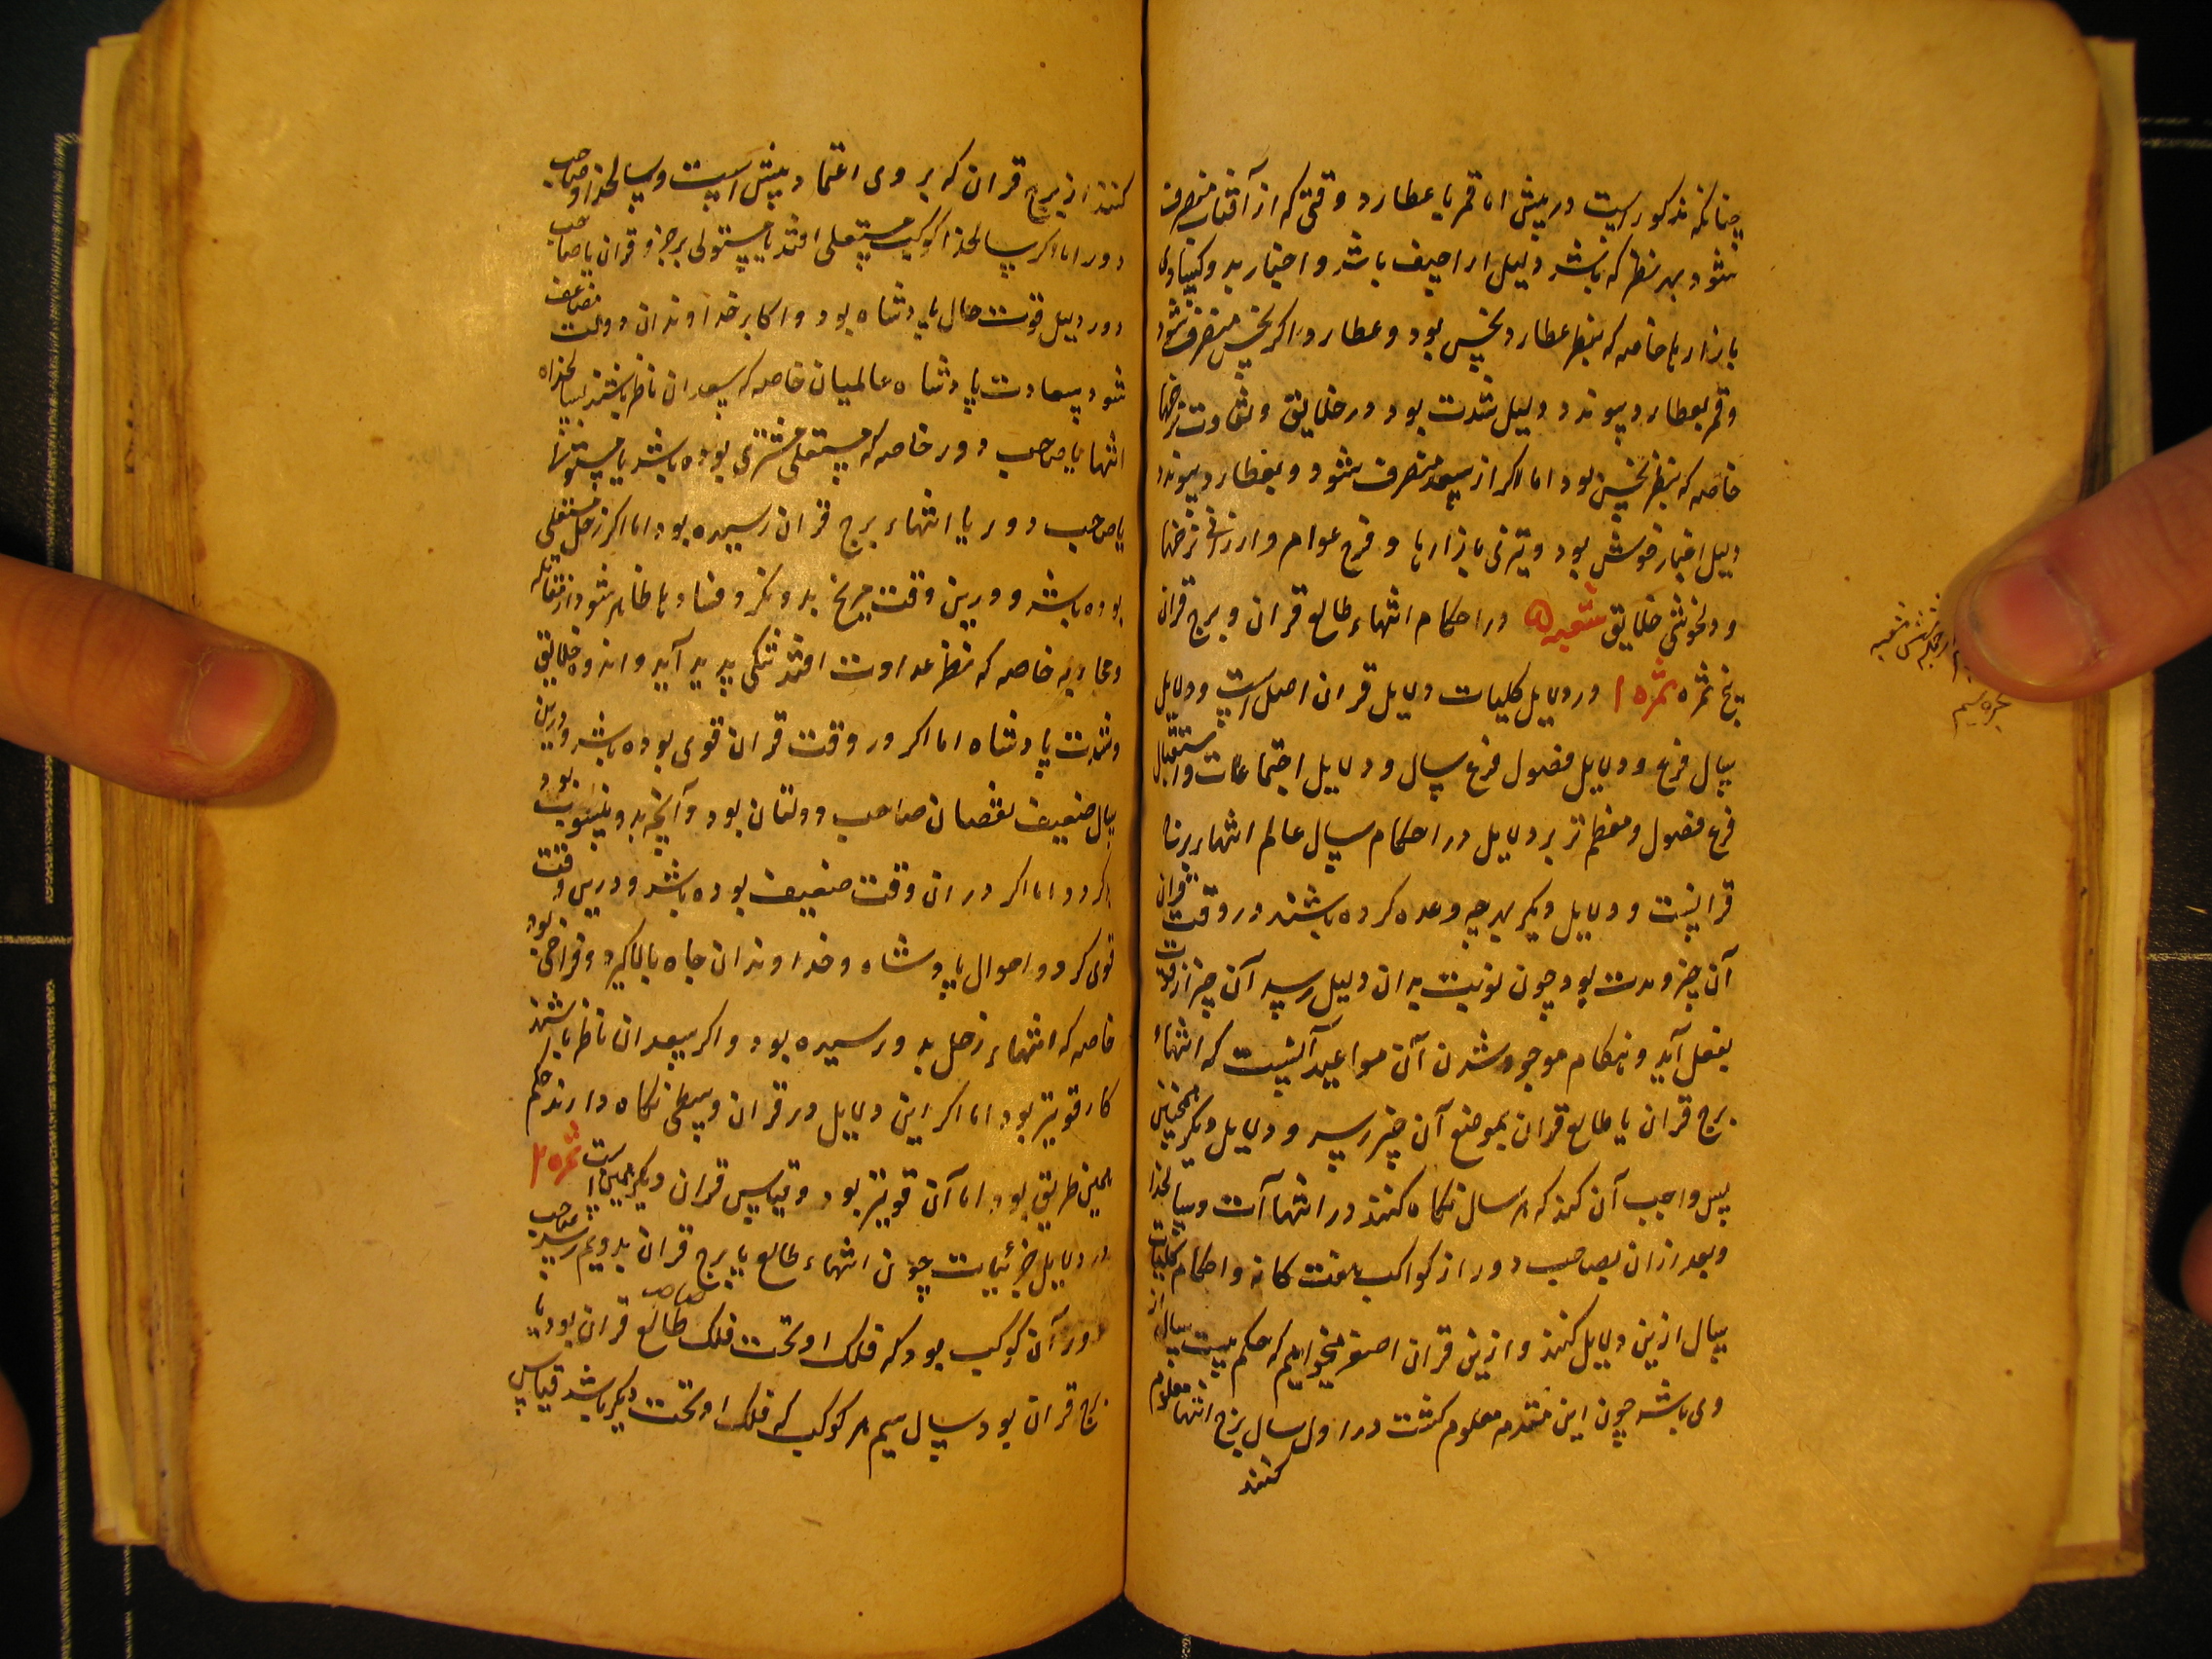 چنانکه مذکورست در پیش اما قمر با عطارد وقتی که از آفتاب منصرف
شود بهر نظر که باشد دلیل اراجیف باشد و اخبار بد و کسادی
بازارها خاصه که بنظر عطارد نحس بود و عطارد اکر بنحس منصرف شود
و قمر بعطارد پیوندد دلیل شدت بود در خلایق و تفاوت نرخها
خاصه که بنظر نحس بود اما اکر از سعد منصرف شود و بعطارد پیوندد
دلیل اخبار خوش بود و تیزی بازارها و فرح عوام و ارزانی نرخها
و دلخوشی خلایق شعبه ۵ در احکام انتهاء طالع قران و برج قران
پنج ثمره ثمره ۱ در دلایل کلیات دلایل قران اصل است و دلایل
سال فرع و دلایل فصول فرع سال و دلایل اجتماعات و استقبال
فرع فصول و معظم تر بر دلایل در احکام سال عالم انتهاء برج
قرانیست و دلایل دیکر بهرچه وعده کرده باشند در وقت قران
آن چیز و مدت بود چون نوبت بدان دلیل رسد آن چیز از قوت
بفعل آید و هنکام موجود شدن آن مواعید آنست که انتهاء
برج قران یا طالع قران بموضع آن چیز رسد و دلایل دیکر همچنین
پس واجب آن کند که هر سال نکاه کنند در انتهاآت و سالخدا
و بعد ازان بصاحب دور از کواکب هفت کانه و احکام کلیات
سال ازین دلایل کنند و ازین قران اصغر میخواهیم که حکم بیست سال از
وی باشد چون این مقدم معلوم کشت در اول سال برج انتها معلوم
کنند
کنند از برج قران که بر وی اعتماد بیش است و سالخدا و صاحب
دور اما اکر سالخدا کوکب مستعلی افتد یا مستولی بر جزو قران یا صاحب
دور دلیل قوت حال پادشاه بود و اکابر خداوندان دولت مضاعف
شود بسعادت پادشاه عالمیان خاصه که سعدان ناظر باشند بسالخداه
انتها یا صاحب دور خاصه که مستعلی مشتری بوده باشد یا مستولی
یا صاحب دور یا انتهاء برج قران رسیده بود اما اکر زحل مستعلی
بوده باشد و درین وقت مریخ بدو نکرد فسادها ظاهر شود از مقاتله
و محاربه خاصه که نظر عداوت افتد تنکی پدید آید و اندوه خلایق
و شدت پادشاه اما اکر در وقت قران قوی بوده باشد و درین
سال ضعیف نقصان صاحب دولتان بود و آنچه بدو منسوب بود
کردد اما اکر در ان وقت ضعیف بوده باشد و درین وقت
قوی کردد احوال پادشاه و خداوندان جاه بالا کیرد و فراخی بود
خاصه که انتهاء زحل بدو رسیده بود و اکر سعدان ناظر باشند
کار قویتر بود اما اکر این دلایل در قران وسطی نکاه دارند حکم
همین طریق بود اما آن قویتر بود و قیاس قران دیکر همین است ثمره ۲
در دلایل جزئیات چون انتهاء طالع یا برج قران بدویم رسد صاحب
دور آن کوکب بود که فلک او تحت فلک صاحب طالع قران بود یا
برج قران بود سال سیم هر کوکب که فلک او تحت دیکر باشد قیاس